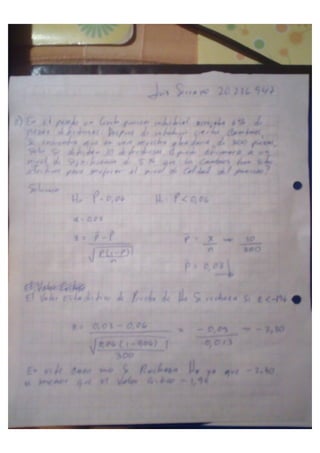 Luis Serrano 20.236.947
En el pasado un cierto proceso industrial arrojaba 6% de
piezas defectuosas. Después de introducir ciertos cambios,
se encuentra que en una muestra aleatoria de 300 piezas,
Solo 10 defectuosas afirmarse a un
nivel de significancia de 5% que los cambios han sido
efectivos para mejorar el nivel de calidad del proceso?
Solución
Ho P=0,06 H₁ P<0,06
α=0.05
z = p̂-P / √(P(1-P)/n) p̂ = x/n → 10/300
p̂ = 0,03
El Valor Critico
El Valor Estadístico de Prueba de Ho Se rechaza Si z<-1,96
z = 0,03-0,06 / √(0,06(1-0,06)/300) = -0,03/0,013 = -2,30
En este caso Se Rechaza Ho ya que -2,30,
es menor que el Valor Critico -1,96